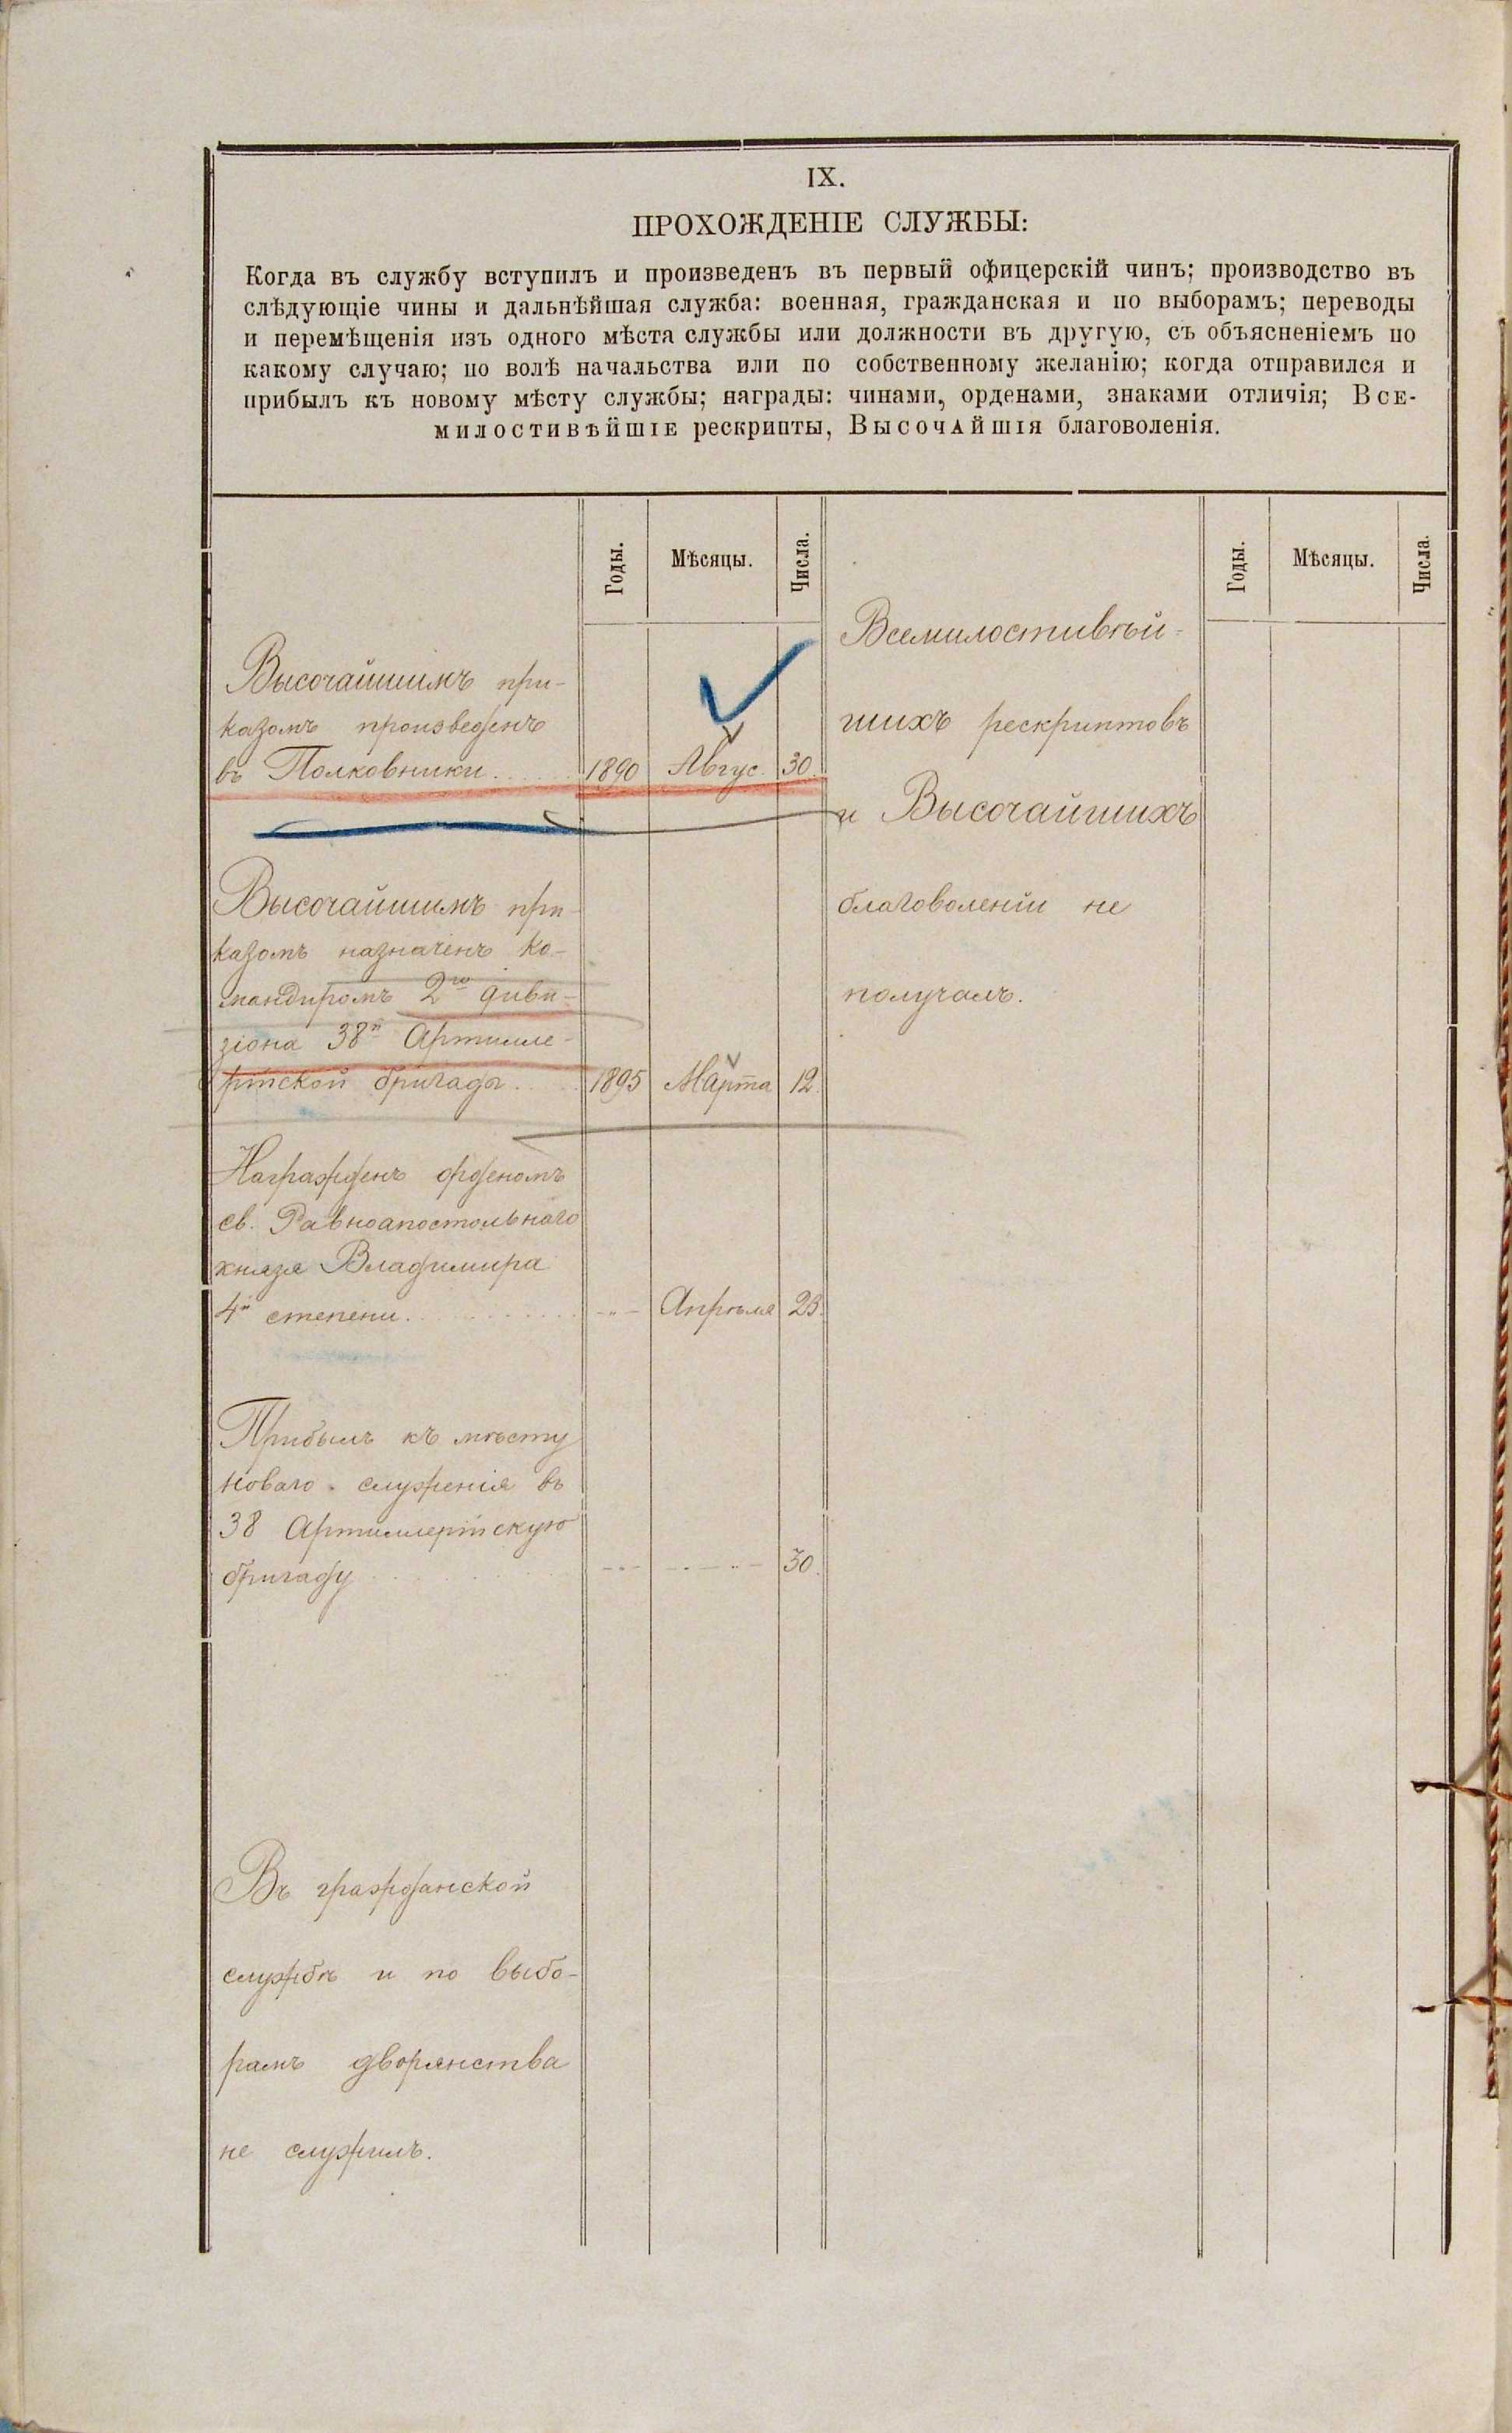 IX.
ПРОХОЖДЕНІЕ СЛУЖБЫ:
Когда въ службу вступилъ и произведенъ въ первый офицерскій чинъ; производство въ
слѣдующіе чины и дальнѣйшая служба: военная, гражданская и по выборамъ; переводы
и перемѣщенія изъ одного мѣста службы или должности въ другую, съ объясненіемъ по
какому случаю; по волѣ начальства или по собственному желанію; когда отправился и
прибылъ къ новому мѣсту службы; награды: чинами, орденами, знаками отличія; Все-
милостивѣйшіе рескрипты, Высочайшія благоволенія.
Годы. Мѣсяцы. Числа.
Высочайшимъ при-
казомъ произведенъ
въ Полковники. 1890 Авгус. 30.
Высочайшимъ при-
казомъ назначенъ ко-
мандиромъ 2го диви-
зіона 38й Артилле-
рійской бригады. 1895 Марта 12.
Награжденъ орденомъ
св. Равноапостольнаго
князя Владимира
4й степени. -"- Апрѣля 23.
Прибылъ къ мѣсту
новаго служенія въ
38 Артиллерійскую
бригаду -"- -"- 30.
Въ гражданской
службѣ и по выбо-
рамъ дворянства
не служилъ.
Годы. Мѣсяцы. Числа.
Всемилостивѣй-
шихъ рескриптовъ
и Высочайшихъ
благоволеній не
получалъ.